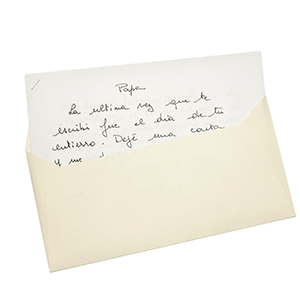 Papa
La ultima vez que te
escribí fue el día de tu
entierro. Dejé una carta
y me